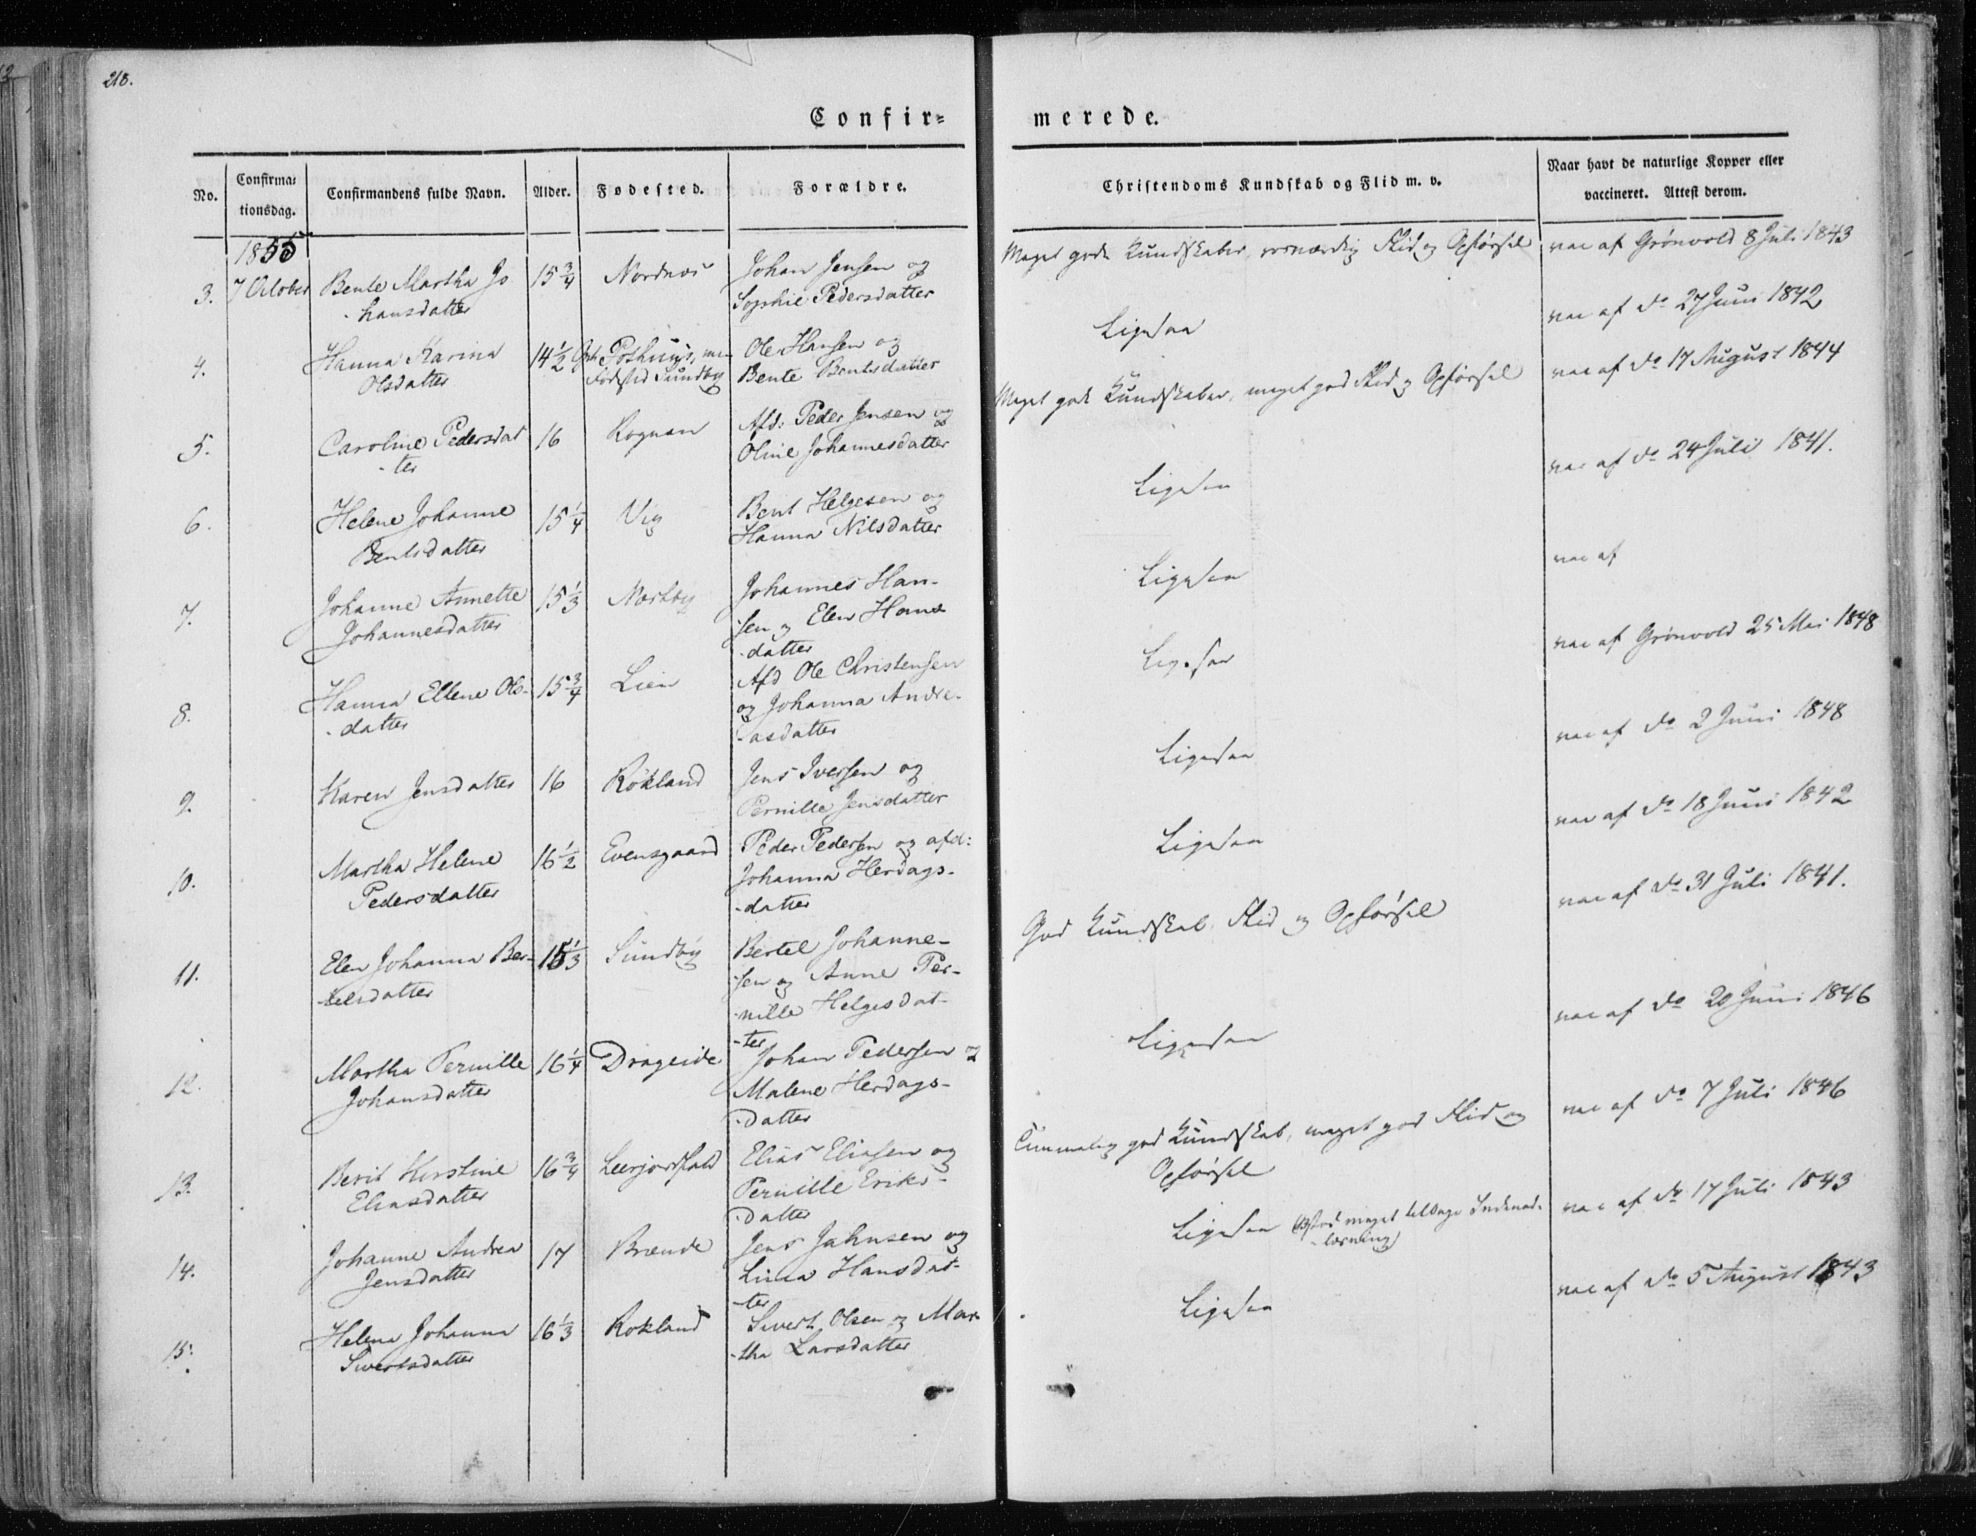 218.
Confir=
merede.
No.
Confirma=
tionsdag.
Confirmandens fulde Navn.
Alder.
Fødested.
Forældre.
Christendoms Kundskab og Flid m. v.
Naar havt de naturlige Kopper eller
vaccineret. Attest derom.
1855
3. 7 October Bente Martha Jo 15 3/4 Nordnæs Johan Jensen og
hansdatter Sophie Pedersdatter
Meget gode Kundskaber, Flid og Opførsel vac af Grönvold 8 Juli 1843
4. Hanna Karina 14 1/2 Pothuus, Ole Hansen og
Olsdatter Födsted Sundby Bente Bentsdatter
Ligesaa vac af do 27 Juni 1842
5. Caroline Pedersdat 16 Rognan Afd: Peder Jensen og
-ter Oline Johannesdatter
Meget gode Kundskaber, meget god Flid og Opførsel vac af do 17 August 1844
6. Helene Johanne 15 1/4 Vig Bent Helgesen og
Bentsdatter Hanna Nilsdatter
Ligesaa vac af do 24 Juli 1841.
7. Johanne Annette 15 1/3 Nestby Johannes Han-
Johannesdatter sen og Elen Hans
-datter
Ligesaa vac af
8. Hanna Ellene Ols- 15 3/4 Lien Afd Ole Christensen
-datter og Johanna Andre-
-asdatter
Ligesaa vac af Grönvold 25 Mai 1848
9. Karen Jensdatter 16 Rökland Jens Iversen og
Pernille Jensdatter
Ligesaa vac af do 2 Juni 1848
10. Martha Helene 16 1/2 Evensgaard Peder Pedersen og afd:
Pedersdatter Johanna Herdags-
-datter
Ligesaa vac af do 18 Juni 1842
11. Elen Johanna Ber- 15 1/3 Sundby Bertel Johanne-
-telsdatter sen og Anne Per-
-nille Helgesdat-
-ter
God Kundskab, Flid og Opførsel vac af do 31 Juli 1841.
12. Martha Pernille 16 1/4 Drageide Johan Pedersen og
Johansdatter Malene Herdags-
-datter
Ligesaa vac af do 20 Juni 1846
13. Berit Kirstine 16 3/4 Elias Eliasen og
Eliasdatter Pernille Eriks-
-datter
Temmelig god Kundskab, meget god Flid og
Opførsel vac af do 7 Juli 1846
14. Johanne Andrea 17 Brænde Jens Jahnsen og
Jensdatter Lina Hansdat-
-ter
Ligesaa meget
-læsning) vac af do 17 Juli 1843
15. Helena Johanna 16 1/3 Rokland Sivert Olsen og Mar
Sivertsdatter -tha Larsdatter
Ligesaa vac af do 5 August 1843